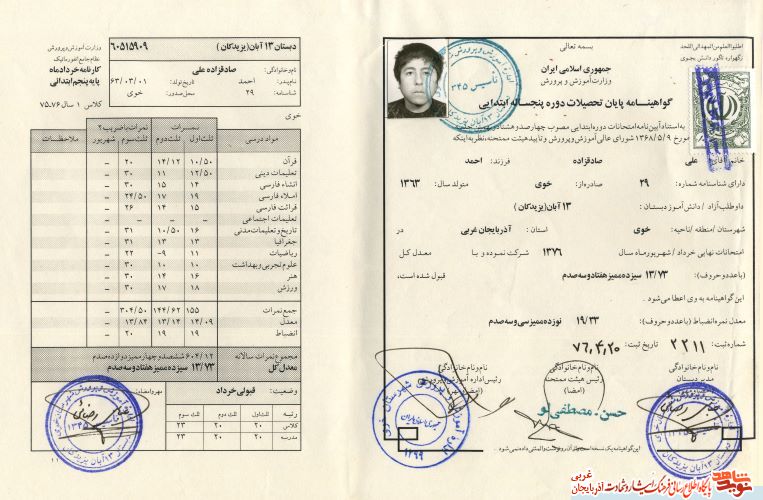 اطلبوا العلم من المهد الی اللحد
زگهواره تا گور دانش بجوی
بسمه تعالی
جمهوری اسلامی ایران
وزارت آموزش و پرورش
گواهینامه پایان تحصیلات دوره پنجساله ابتدایی
به استناد آیین نامه امتحانات دوره ابتدایی مصوب چهارصد و هشتاد و
مورخ ۱۳۶۸/۵/۹ شورای عالی آموزش و پرورش و تأیید هیئت ممتحنه، نظر به اینکه
خانم/آقای: علی صادقزاده فرزند: احمد
دارای شناسنامه شماره: ۲۹ صادره از: خوی متولد سال: ۱۳۶۳
داوطلب آزاد / دانش آموز دبستان: ۱۳ آبان(یزیدکان)
شهرستان / منطقه / ناحیه: خوی استان: آذربایجان غربی در
امتحانات نهایی خرداد / شهریور ماه سال ۱۳۷۶ شرکت نموده و با معدل کل
(با عدد و حروف): ۱۳/۷۳ سیزده ممیز هفتاد و سه صدم قبول شده است،
این گواهینامه به وی اعطا می شود.
معدل نمره انضباط (با عدد و حروف): ۱۹/۳۳ نوزده ممیز سی و سه صدم
شماره ثبت: ۲۲۱۱ تاریخ ثبت: ۷۶,۴,۲۰
نام و نام خانوادگی مدیر دبستان
نام و نام خانوادگی رئیس هیئت ممتحنه (امضا)
نام و نام خانوادگی رئیس اداره آموزش و پرورش
حسن - مصطفی لو
این گواهینامه یک نسخه است
دبستان ۱۳ آبان(یزیدکان) ۶۰۵۱۵۹۰۹
نام و نام خانوادگی: صادقزاده علی
نام پدر: احمد تاریخ تولد: ۶۳/۰۳/۰۱
شناسنامه: ۲۹ محل صدور: خوی
وزارت آموزش و پرورش
نظام جامع انفورماتیک
کارنامه خردادماه
پایه پنجم ابتدائی
کلاس ۱ سال ۷۵.۷۶
خوی
مواد درسی نمرات ثلث اول ثلث دوم نمرات با ضریب ۲ ثلث سوم شهریور ملاحظات
قرآن ۱۰/۵۰ ۱۴/۱۲ ۲۰ --
تعلیمات دینی ۱۲/۵۰ ۱۱ ۳۰ --
انشاء فارسی ۱۴ ۱۵ ۳۰ --
املاء فارسی ۱۹ ۱۷ ۲۴/۵۰ --
قرائت فارسی ۱۵ ۱۴ ۲۶ --
تعلیمات اجتماعی -- -- -- --
تاریخ و تعلیمات مدنی ۱۶ ۱۰/۵۰ ۳۱ --
جغرافیا ۱۳ ۱۳ ۳۱ --
ریاضیات ۱۱ ۹- ۲۲ --
علوم تجربی و بهداشت ۱۰ ۱۰ ۳۰ --
هنر ۱۶ ۱۴ ۳۰ --
ورزش ۱۸ ۱۷ ۳۰ --
جمع نمرات ۱۵۵ ۱۴۴/۶۲ ۳۰۴/۵۰ --
معدل ۱۴/۰۹ ۱۳/۱۴ ۱۳/۸۴ --
انضباط ۱۹ ۱۹ ۲۰ --
مجموع نمرات سالانه ۶۰۴/۱۲ ششصد و چهار ممیز دوازده صدم
معدل کل ۱۳/۷۳ سیزده ممیز هفتاد و سه صدم
وضعیت: قبولی خرداد
رتبه ثلث اول ثلث دوم ثلث سوم
کلاس ۲۰ ۲۰ ۲۳
مدرسه ۲۰ ۲۰ ۲۳
مهر و امضاء مدیر
نوید شاهد
پایگاه اطلاع رسانی فرهنگ ایثار و شهادت آذربایجان غربی